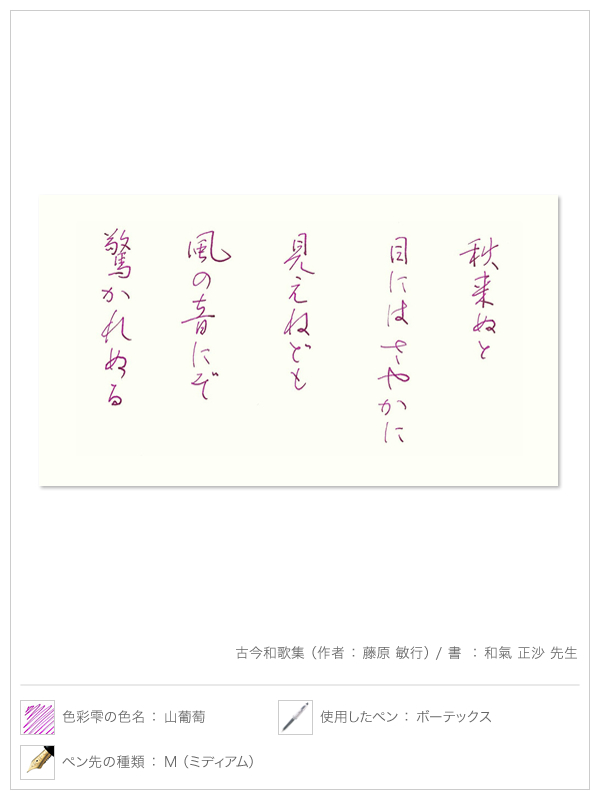 秋来ぬと
目にはさやかに
見えねども
風の音にぞ
驚かれぬる
古今和歌集（作者：藤原 敏行）/ 書 ：和氣 正沙 先生
色彩雫の色名：山葡萄
使用したペン：ボーテックス
ペン先の種類：M（ミディアム）